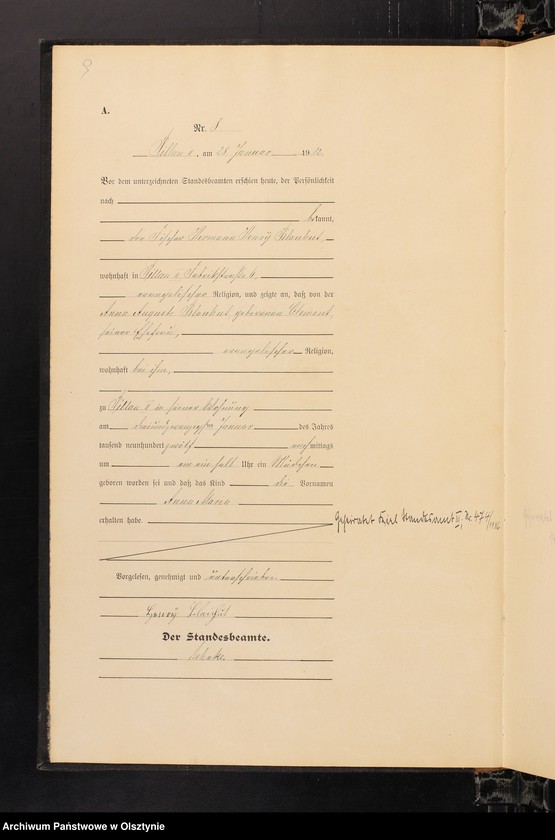 9
A.
Nr. 8
Pillau I, am 28. Januar 1912.
Vor dem unterzeichneten Standesbeamten erschien heute, der Persönlichkeit
nach
bekannt,
der Hermann Henry
wohnhaft in Pillau I
evangelischer Religion, und zeigte an, daß von der
Anna Auguste geborenen Clement,
seiner Ehefrau,
evangelischer Religion,
wohnhaft bei ihm,
zu Pillau I in seiner Wohnung
am Januar des Jahres
tausend neunhundert zwölf nachmittags
um ein ein halb Uhr ein Mädchen
geboren worden sei und daß das Kind die Vornamen
Anna Maria
erhalten habe.
Geheiratet Kiel Standesamt II, Nr. 474/
Vorgelesen, genehmigt und unterschrieben
Henry
Der Standesbeamte.
Archiwum Państwowe w Olsztynie